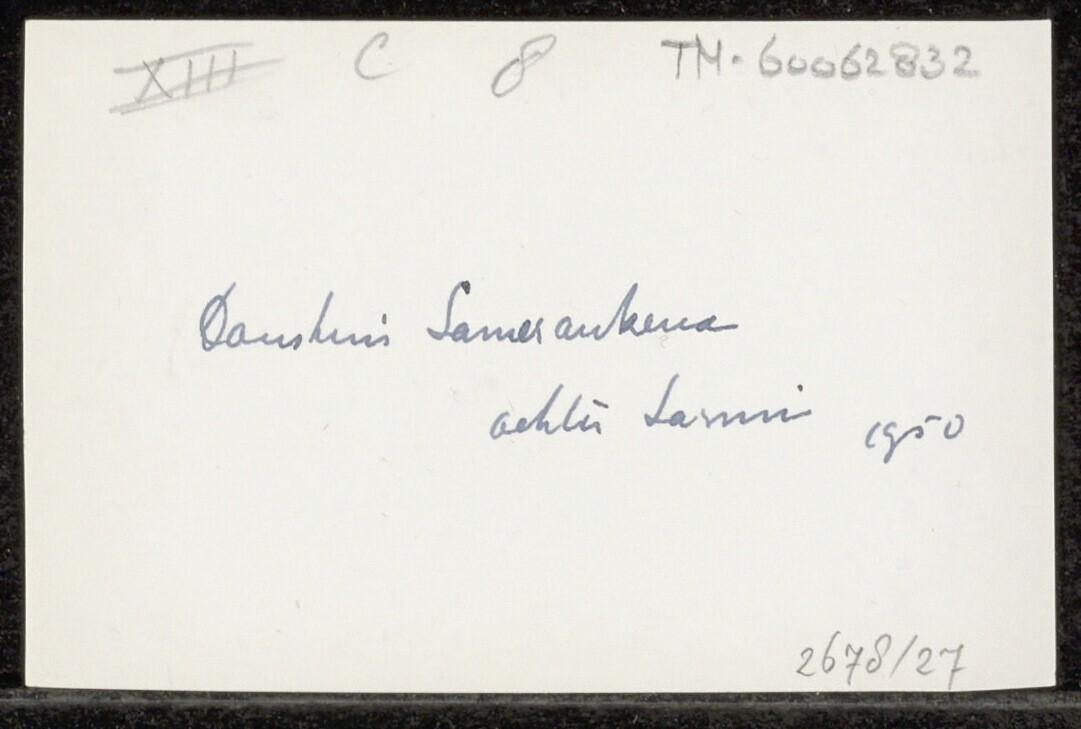 XIII C 8 TM-60062832
Danshuis Samerankena
achter Sarmi 1950
2678/27